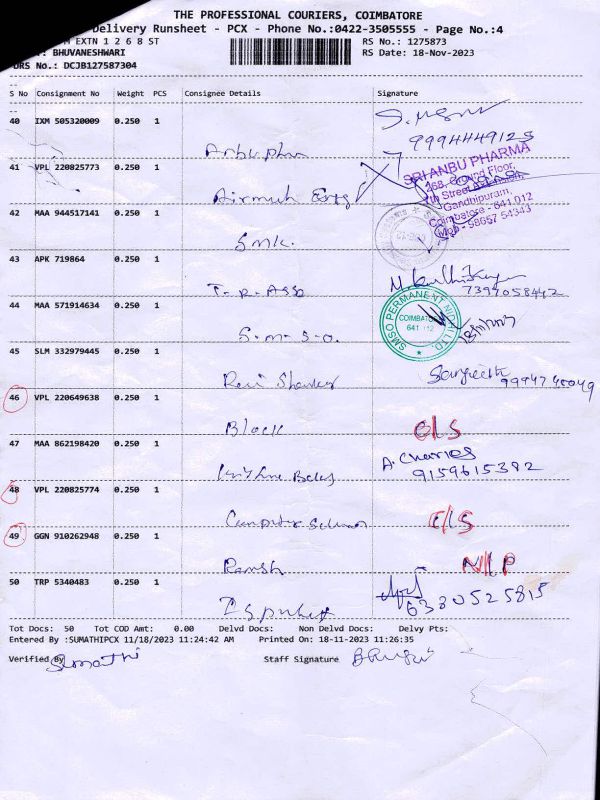 THE PROFESSIONAL COURIERS, COIMBATORE
Delivery Runsheet - PCX - Phone No.:0422-3505555 - Page No.:4
EXTN 1 2 6 8 ST RS No.: 1275873
: BHUVANESHWARI RS Date: 18-Nov-2023
DRS No.: DCJB127587304
S No Consignment No Weight PCS Consignee Details Signature
40 IXM 505320009 0.250 1
9994449125
41 VPL 220825773 0.250 1
SRI ANBU PHARMA
168, Ground Floor,
7th Street Extension,
Gandhipuram,
Coimbatore - 641 012
Mob - 98657 54343
42 MAA 944517141 0.250 1
Smk.
43 APK 719864 0.250 1
T-R-Ass
7397058442
44 MAA 571914634 0.250 1
S-m-s-o.
SMSO PERMANENT NIDHI LTD.
COIMBATORE
641 012
45 SLM 332979445 0.250 1
Ravi Shanker
Sangeeth
46 VPL 220649638 0.250 1
Block
C/S
47 MAA 862198420 0.250 1
A. Charles
9159615382
48 VPL 220825774 0.250 1
Computer School
C/S
49 GGN 910262948 0.250 1
Ramsh
N/P
50 TRP 5340483 0.250 1
6380525815
Tot Docs: 50 Tot COD Amt: 0.00 Delvd Docs: Non Delvd Docs: Delvy Pts:
Entered By :SUMATHIPCX 11/18/2023 11:24:42 AM Printed On: 18-11-2023 11:26:35
Verified By Sumathi Staff Signature